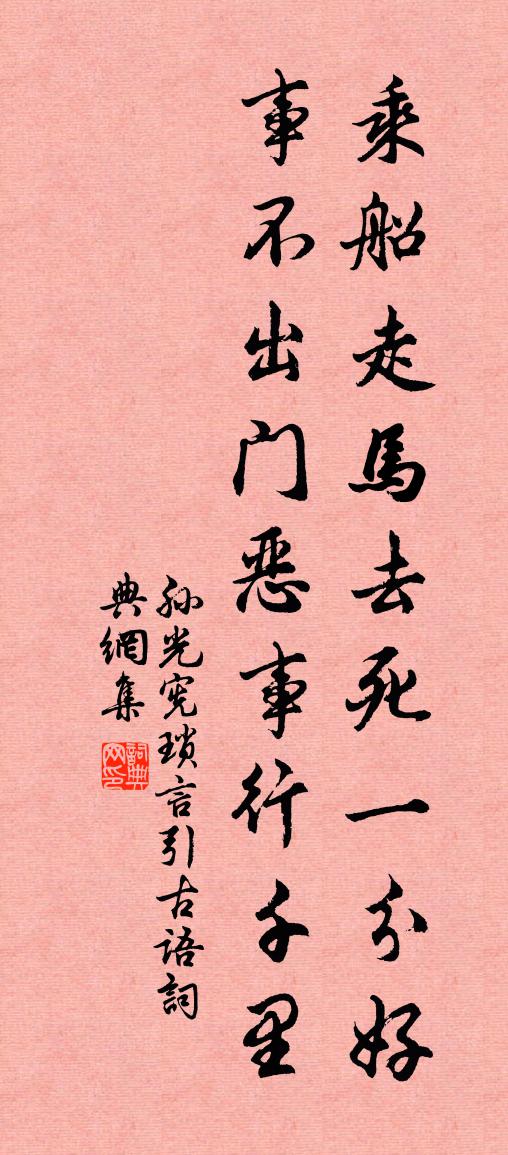 乘船走馬去死一分好
事不出门恶事行千里
孙光宪琐言引古语詞
典網集
詞典网印